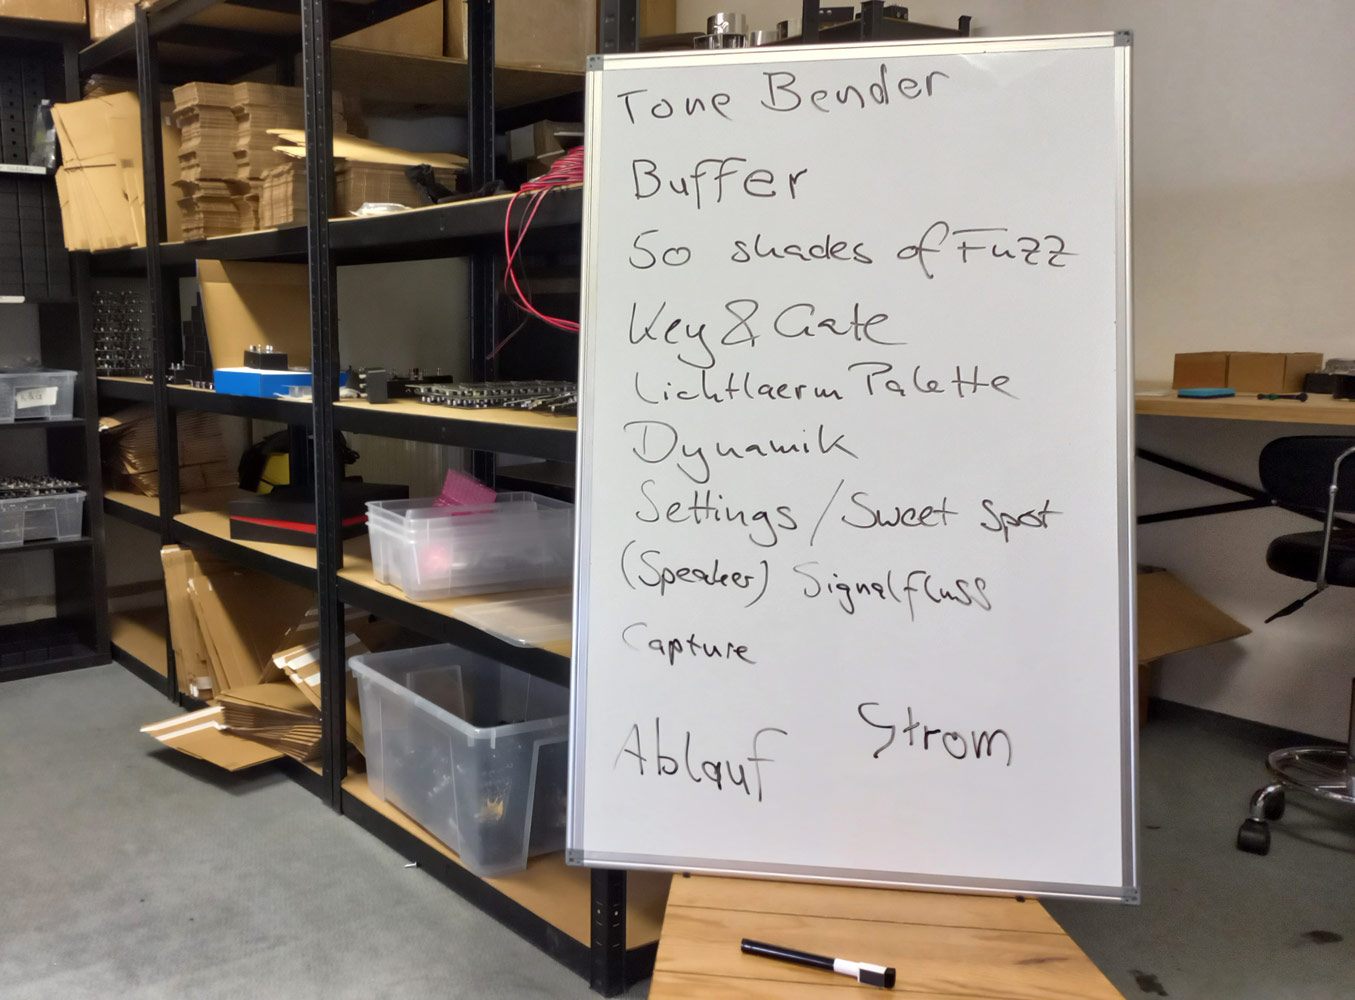 Tone Bender
Buffer
50 shades of Fuzz
Key & Gate
Lichtlaerm Palette
Dynamik
Settings / Sweet Spot
(Speaker) Signalfluss
Capture
Ablauf Strom